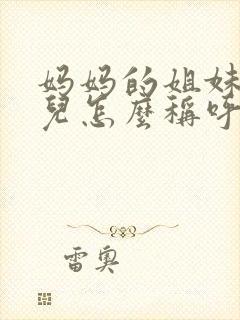 妈妈的姐妹
兒怎麼稱呼
雷奥